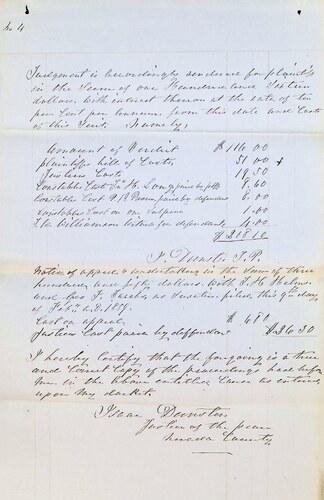 No 4
Judgment is accordingly rendered for plaintiff
in the Sum of one Hundred and Sixteen
dollars with interest thereon at the rate of ten
per Cent per annum from this date and Costs
of this Suit. Namely,
Amount of Verdict $ 116.00
plaintiffs bill of Costs 51.00
Justices Costs 19.50
Constable Costs Long paid by plff
Constable Cost paid by defendant 8.00
Constables Cost on one Subpena 1.00
Williamson witness for defendant 4.00
J. Dunster J.P.
Notice of appeal & undertaking in the Sum of three
hundred and fifty dollars with
and Geo. J. as Sureties filed this day
of A.D.
Cost on appeal $ 6.80
Justices Cost paid by deffendant
I hereby Certify that the foregoing is a true
and Correct Copy of the proceedings had before
me in the above entitled Cause as entered
upon my docket.
Isaac Dunster
Justice of the peace
Nevada County